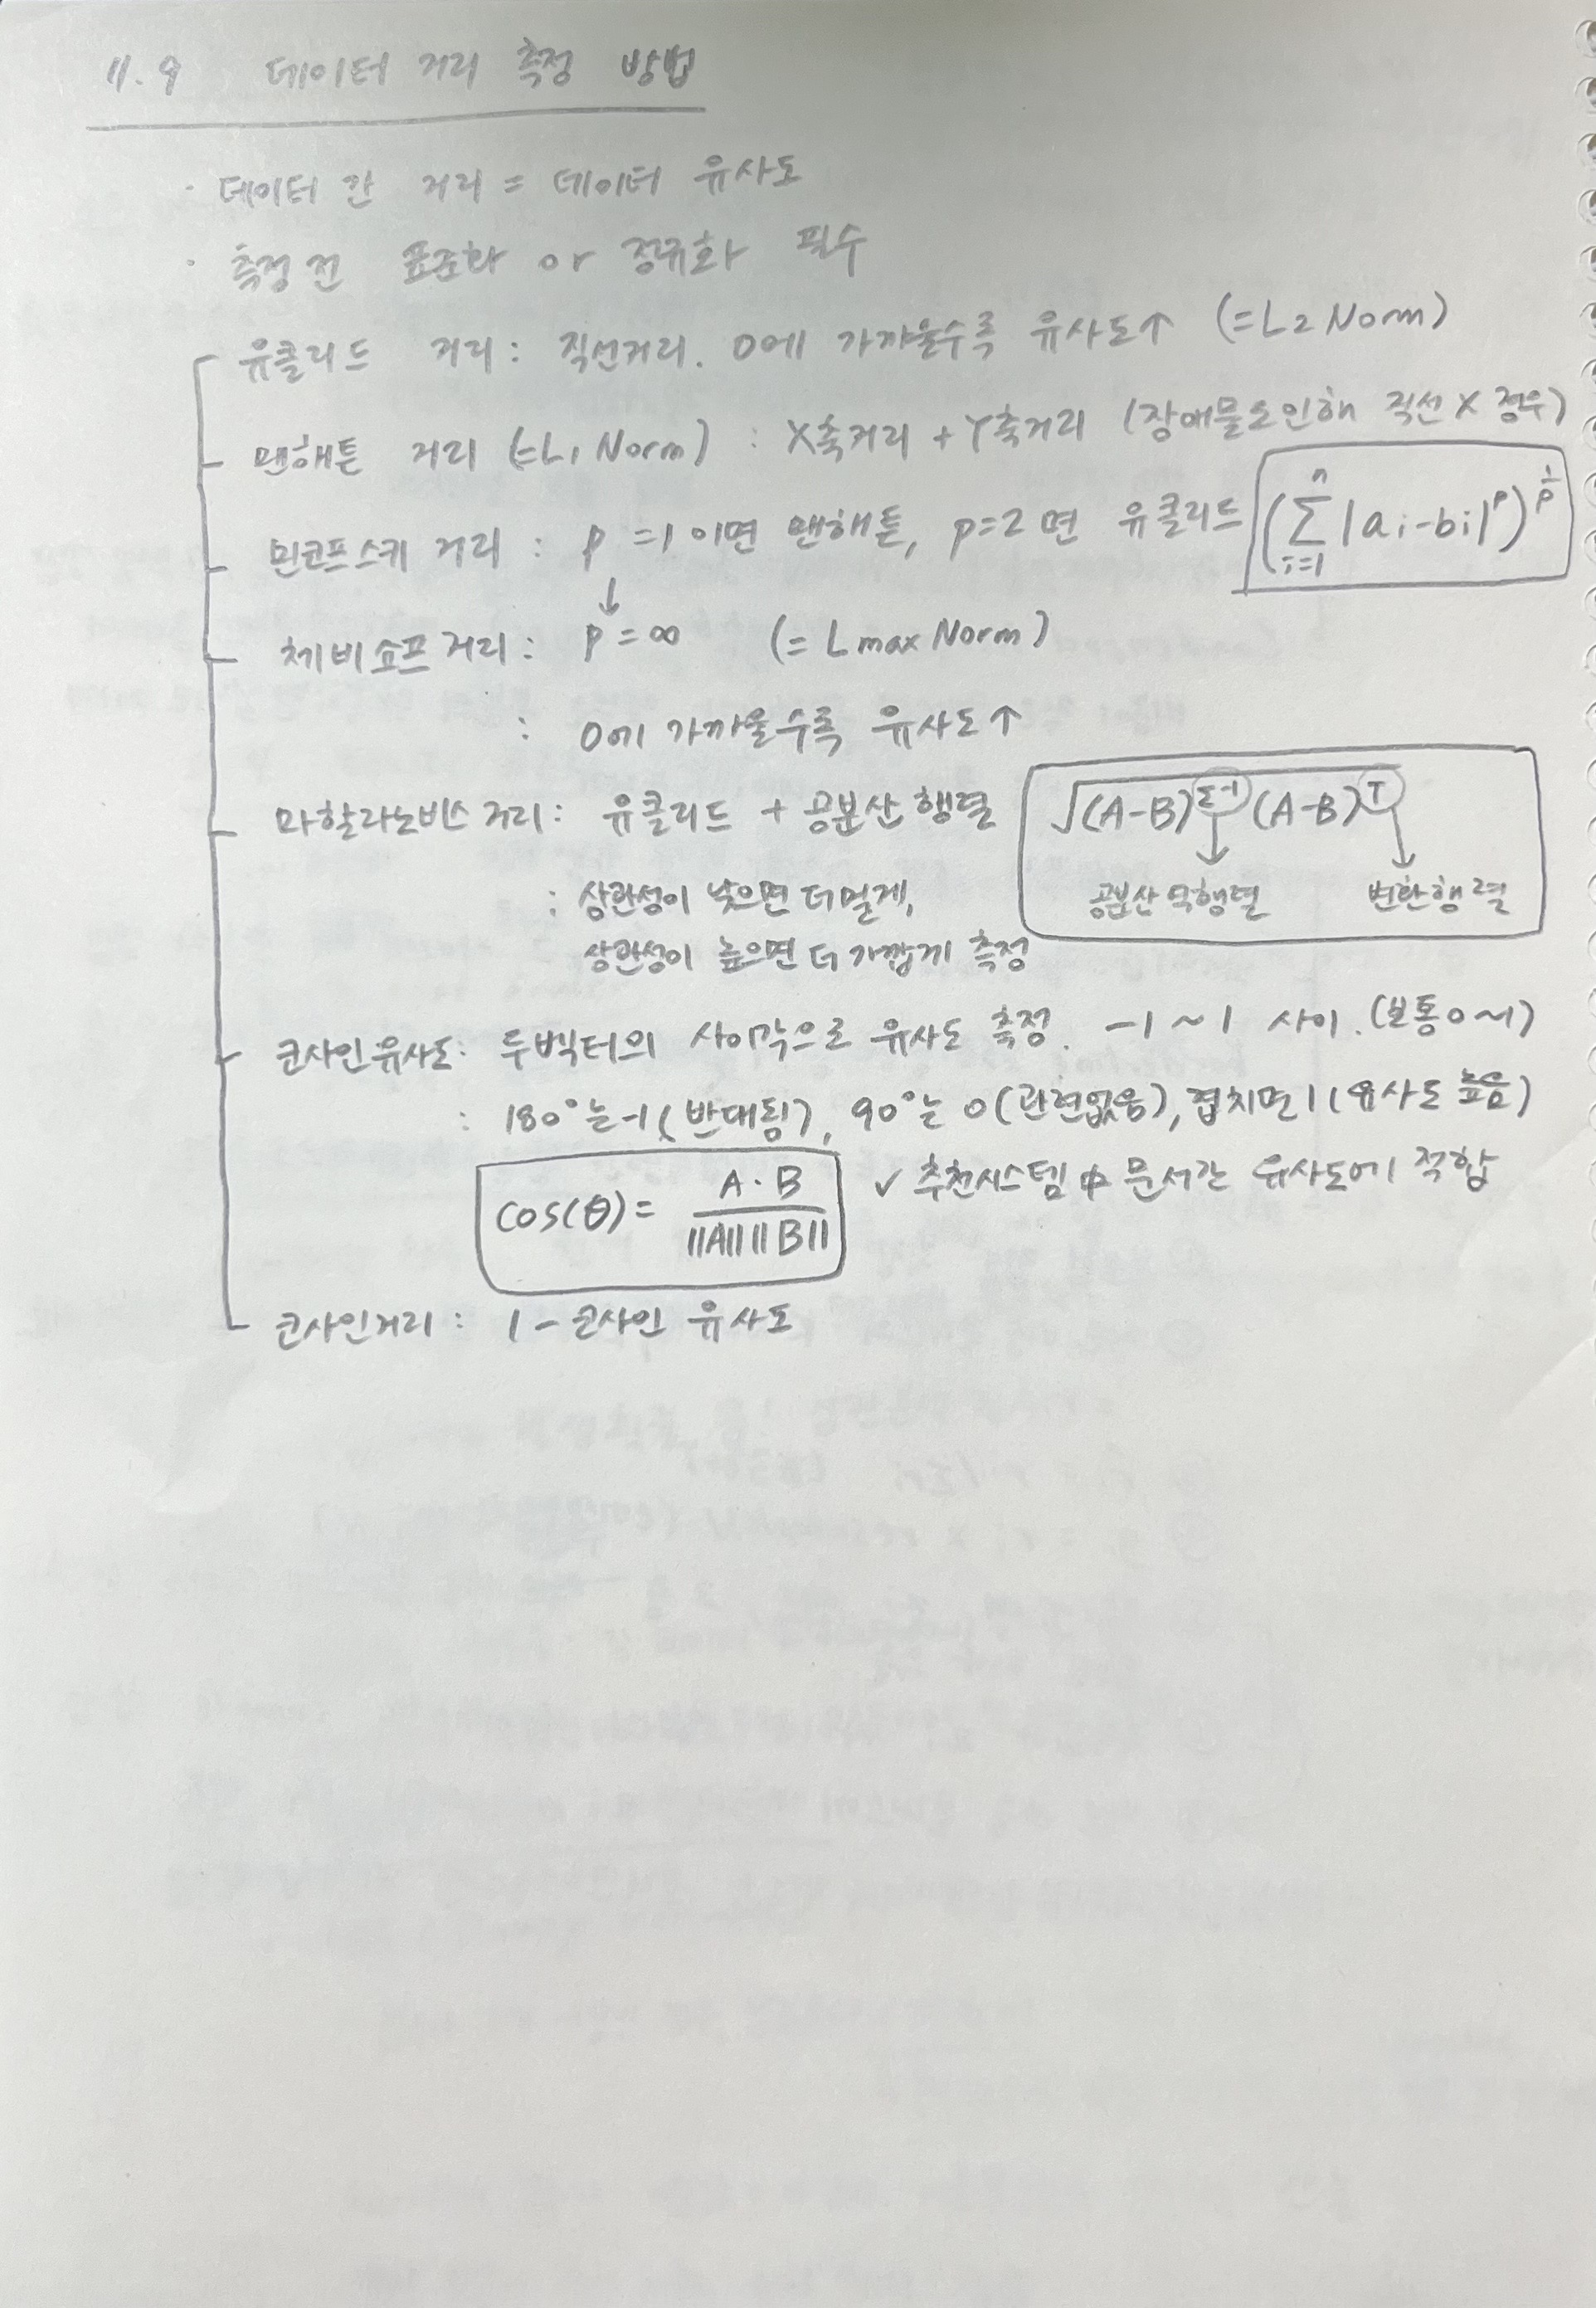 11.9 데이터 거리 측정 방법
· 데이터 간 거리 = 데이터 유사도
· 측정 전 표준화 or 정규화 필수
유클리드 거리 : 직선거리. 0에 가까울수록 유사도↑ (=L2 Norm)
맨해튼 거리 (=L1 Norm) : X축거리 + Y축거리 (장애물로인해 직선 X 경우)
민코프스키 거리 : p =1 이면 맨해튼, p=2 면 유클리드 (∑_{i=1}^{n} |ai-bi|^p)^{1/p}
↓
체비쇼프거리 : p = ∞ (= Lmax Norm)
: 0에 가까울수록 유사도↑
마할라노비스 거리 : 유클리드 + 공분산 행렬 √(A-B)Σ⁻¹(A-B)ᵀ
: 상관성이 낮으면 더 멀게, 공분산 역행렬 변환행렬
상관성이 높으면 더 가깝게 측정
코사인유사도 : 두벡터의 사이각으로 유사도 측정. -1 ~ 1 사이. (보통 0~1)
: 180°는 -1 (반대됨), 90°는 0 (관련없음), 겹치면 1 (유사도 높음)
cos(θ) = A·B / ||A|| ||B|| ✓ 추천시스템 문서간 유사도에 적합
코사인거리 : 1 - 코사인 유사도